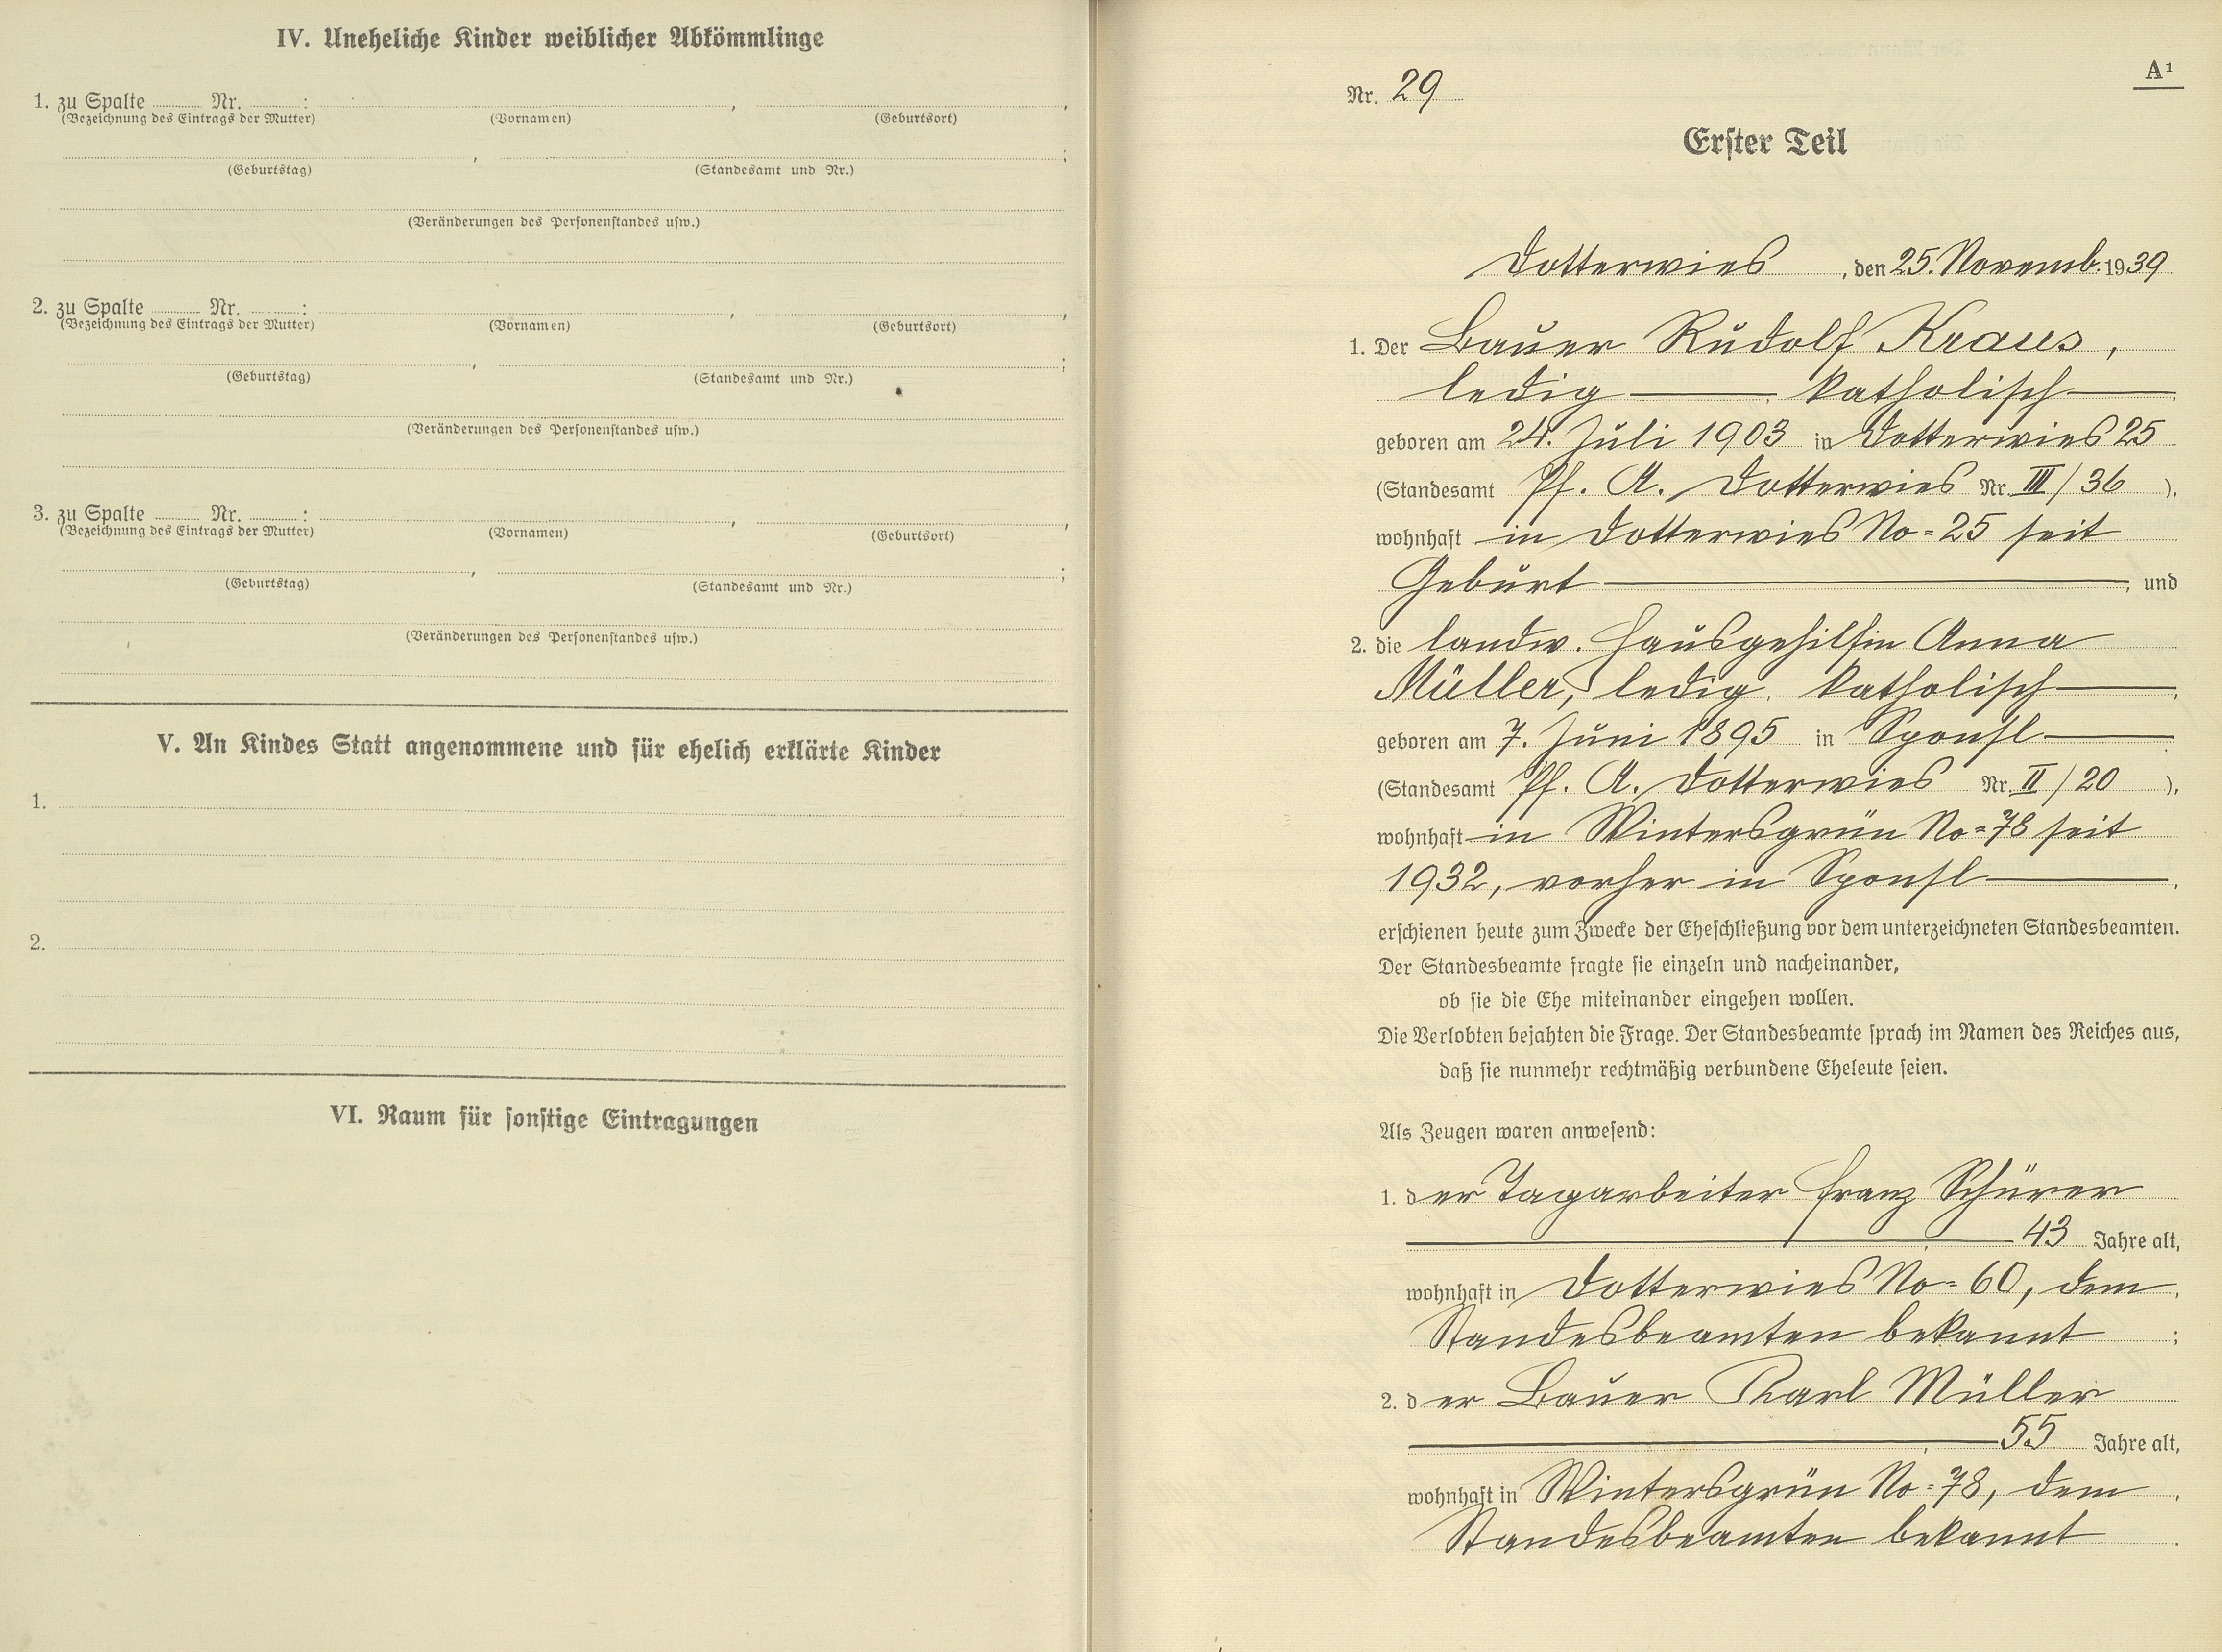 IV. Uneheliche Kinder weiblicher Abkömmlinge
1. zu Spalte ........ Nr. ........ : ........ , ........ ,
(Bezeichnung des Eintrags der Mutter) (Vornamen) (Geburtsort)
........ , ........ ;
(Geburtstag) (Standesamt und Nr.)
(Veränderungen des Personenstandes usw.)
2. zu Spalte ........ Nr. ........ : ........ , ........ ,
(Bezeichnung des Eintrags der Mutter) (Vornamen) (Geburtsort)
........ , ........ ;
(Geburtstag) (Standesamt und Nr.)
(Veränderungen des Personenstandes usw.)
3. zu Spalte ........ Nr. ........ : ........ , ........ ,
(Bezeichnung des Eintrags der Mutter) (Vornamen) (Geburtsort)
........ , ........ ;
(Geburtstag) (Standesamt und Nr.)
(Veränderungen des Personenstandes usw.)
V. An Kindes Statt angenommene und für ehelich erklärte Kinder
1.
2.
VI. Raum für sonstige Eintragungen
A¹
Nr. 29
Erster Teil
Dotterwies, den 25. Novemb. 1939
1. Der Bauer Rudolf Kraus,
ledig — katholisch —,
geboren am 24. Juli 1903 in Dotterwies 25
(Standesamt Pf. A. Dotterwies Nr. III/36),
wohnhaft in Dotterwies No=25 seit
Geburt —, und
2. die landw. Hausgehilfin Anna
Müller, ledig, katholisch —,
geboren am 7. Juni 1895 in Sponsl —
(Standesamt Pf. A. Dotterwies Nr. II/20),
wohnhaft in Wintersgrün No=78 seit
1932, vorher in Sponsl —,
erschienen heute zum Zwecke der Eheschließung vor dem unterzeichneten Standesbeamten.
Der Standesbeamte fragte sie einzeln und nacheinander,
ob sie die Ehe miteinander eingehen wollen.
Die Verlobten bejahten die Frage. Der Standesbeamte sprach im Namen des Reiches aus,
daß sie nunmehr rechtmäßig verbundene Eheleute seien.
Als Zeugen waren anwesend:
1. der Tagarbeiter Franz Schürer
— 43 Jahre alt,
wohnhaft in Dotterwies No=60, dem
Standesbeamten bekannt ;
2. der Bauer Karl Müller
— 55 Jahre alt,
wohnhaft in Wintersgrün No=78, dem
Standesbeamten bekannt .